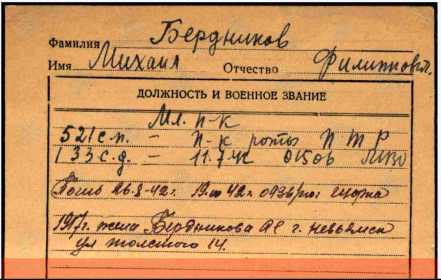 Фамилия Бердников
Имя Михаил Отчество Филиппович
ДОЛЖНОСТЬ И ВОЕННОЕ ЗВАНИЕ
Мл. п-к
521 с.п. – п-к роты П Т Р
133 с.д. – 11.7.42 01506
26.8.42г. 42г.
1917г. жена Бердникова АС г. Невьянск
ул Толстого 14.